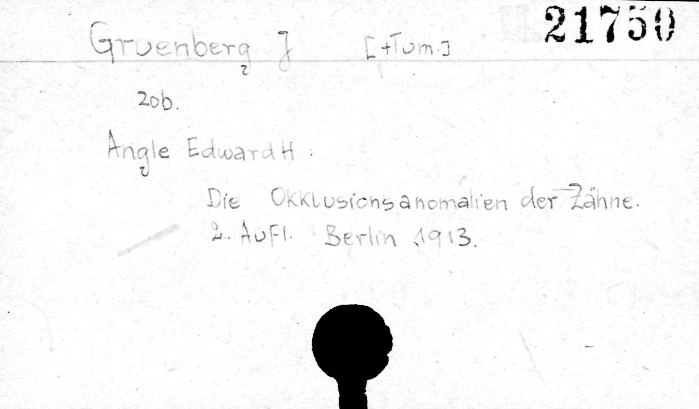 21750
Gruenberg J [+Tum.]
zob.
Angle Edward H.
Die Okklusionsanomalien der Zähne.
2. Aufl. Berlin 1913.